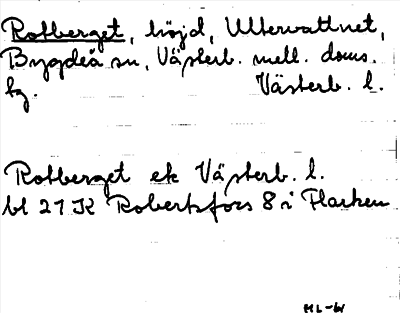 Rotberget, höjd, Ultervattnet,
Bygdeå sn, Västerb. mell. doms.
hg. Västerb. l.
Rotberget ek Västerb. l.
bl 21 K Robertsfors 8 i Flarken
ML-W